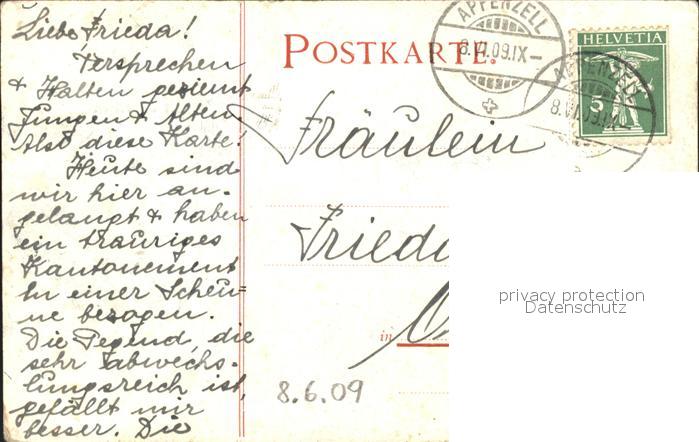 Liebe Frieda!
Versprechen
& Halten geziemt
Jungen & Alten
Also diese Karte!
Heute sind
wir hier an-
gelangt & haben
ein trauriges
Kantonement
In einer Scheu=
ne bezogen.
Die Gegend, die
sehr abwechs-
lungsreich ist,
gefällt mir
besser. Die
POSTKARTE.
APPENZELL
8.VI.09.IX–
HELVETIA
5
APPENZELL
8.VI.09.IX–
Fräulein
in
8.6.09
privacy protection
Datenschutz